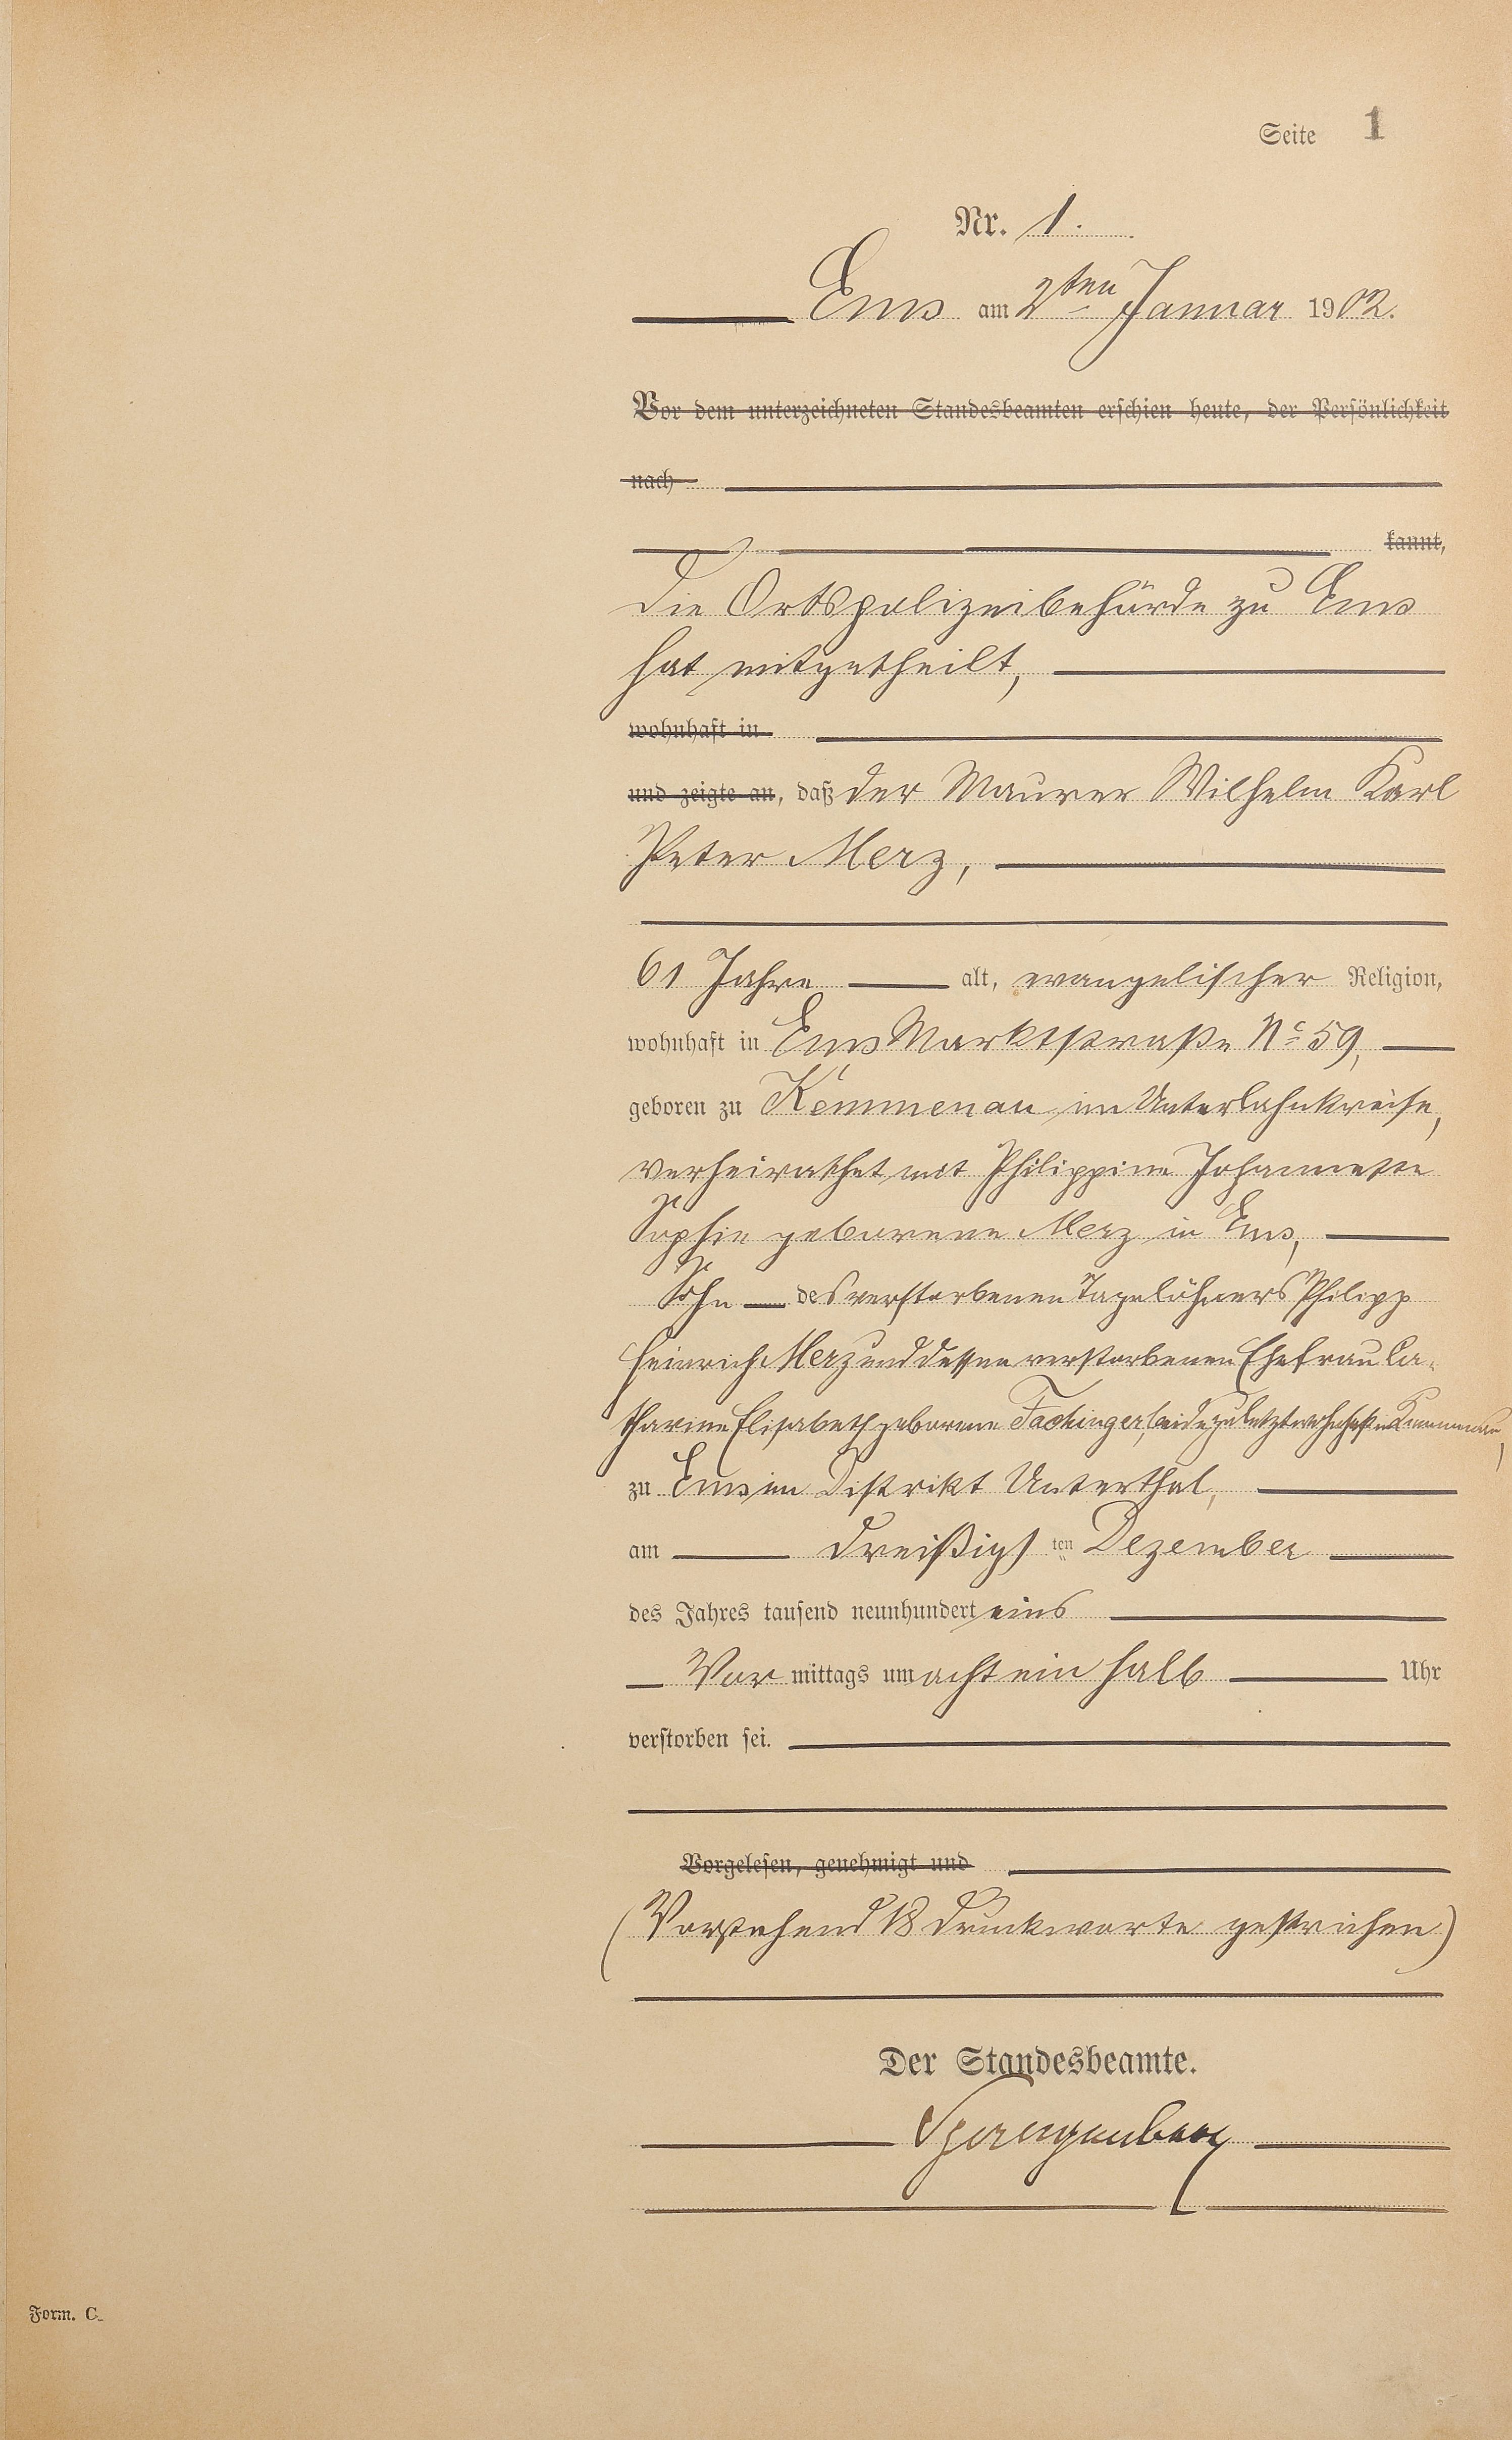 Seite 1
Nr. 1.
Ems am 2ten Januar 1902.
Vor dem unterzeichneten Standesbeamten erschien heute, der Persönlichkeit
nach
kannt,
die Ortspolizeibehörde zu Ems
hat mitgetheilt,
wohnhaft in
und zeigte an, daß der Maurer Wilhelm Karl
Peter Merz,
61 Jahre alt, evangelischer Religion,
wohnhaft in Ems Marktstraße No 59,
geboren zu Kemmenau im Unterlahnkreise,
verheirathet mit Philippine Johannette
Sophie geborene Merz in Ems,
Sohn des verstorbenen Tagelöhners Philipp
Heinrich Merz und dessen verstorbenen Ehefrau Ca-
tharine Elisabeth geborene Fachinger, beide zuletzt wohnhaft in Kemmenau,
zu Ems im Distrikt Unterthal,
am dreißigsten Dezember
des Jahres tausend neunhundert eins
Vor mittags um acht ein halb Uhr
verstorben sei.
Vorgelesen, genehmigt und
(Vorstehend 18 Druckworte gestrichen)
Der Standesbeamte.
Spangenberg
Form. C.